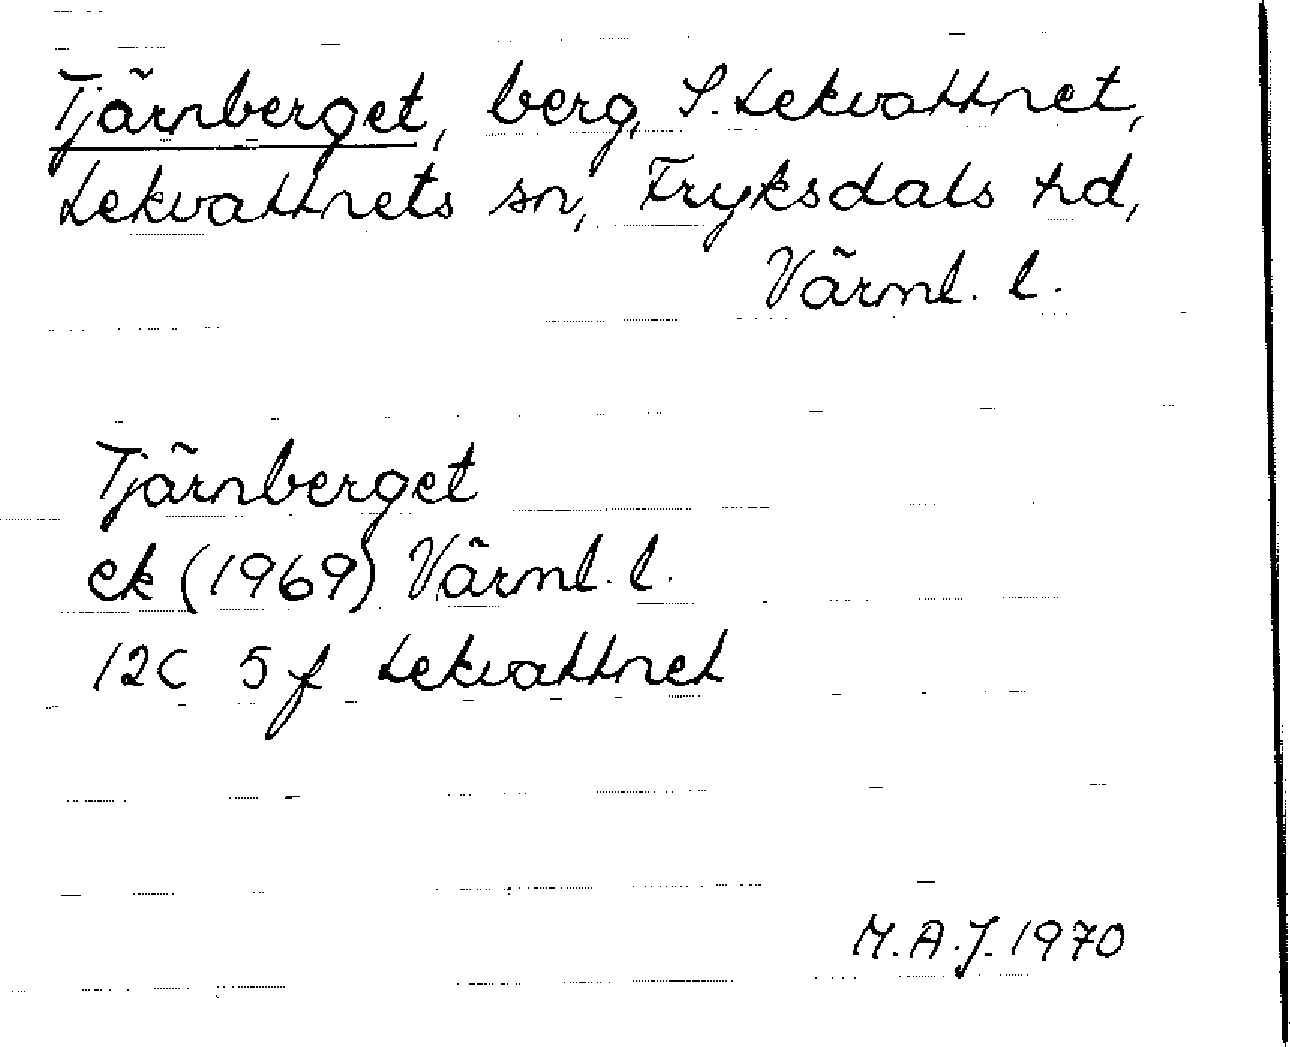 Tjärnberget, berg, S. Lekvattnet,
Lekvattnets sn, Fryksdals hd,
Värml. l.
Tjärnberget
ek (1969) Värml. l.
12C 5f Lekvattnet
M.A.J. 1970